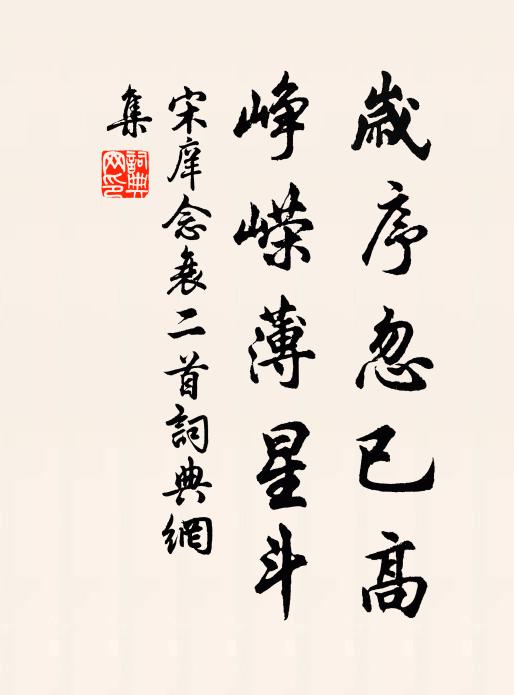 歲序忽已高
峥嶸薄星斗
宋庠念衰二首詞典網
集
詞典
网印